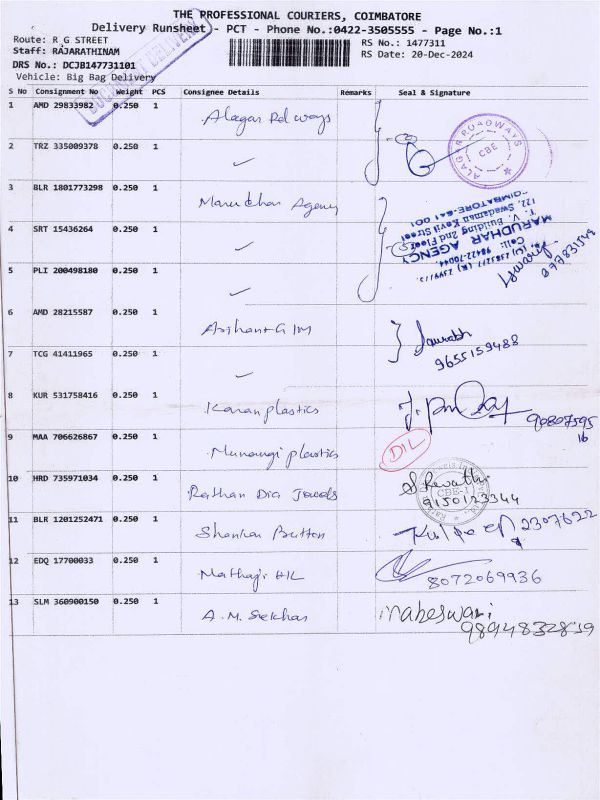 THE PROFESSIONAL COURIERS, COIMBATORE
Delivery Runsheet - PCT - Phone No.:0422-3505555 - Page No.:1
Route: R G STREET
RS No.: 1477311
Staff: RAJARATHINAM
RS Date: 20-Dec-2024
DRS No.: DCJB147731101
Vehicle: Big Bag Delivery
DOCUMENT DELIVERY
S No Consignment No Weight PCS Consignee Details Remarks Seal & Signature
1 AMD 29833982 0.250 1 Alagar Rd ways
ALAGAR ROADWAYS
CBE
2 TRZ 335009378 0.250 1 ✓
3 BLR 1801773298 0.250 1 Marudhar Agency
MARUDHAR AGENCY
T. V. Building 2nd Floor
122, Swadaman Kovil Street
COIMBATORE-641 001
Cell: 98422-70044
4 SRT 15436264 0.250 1 ✓
5 PLI 200498180 0.250 1 ✓
6 AMD 28215587 0.250 1 Arihant GIM
Saurabh
9655159488
7 TCG 41411965 0.250 1 ✓
8 KUR 531758416 0.250 1 Karan plastics
90807595
16
9 MAA 706626867 0.250 1 Munangi plastics
DIL
10 HRD 735971034 0.250 1 Rathan Dia Jewels
S Revathi
9150123344
CBE-1
11 BLR 1201252471 0.250 1 Shankar Button
2307622
12 EDQ 17700033 0.250 1 Mathaji HL
8072069936
13 SLM 360900150 0.250 1 A.M. Sekhar
maheswari
9894832839